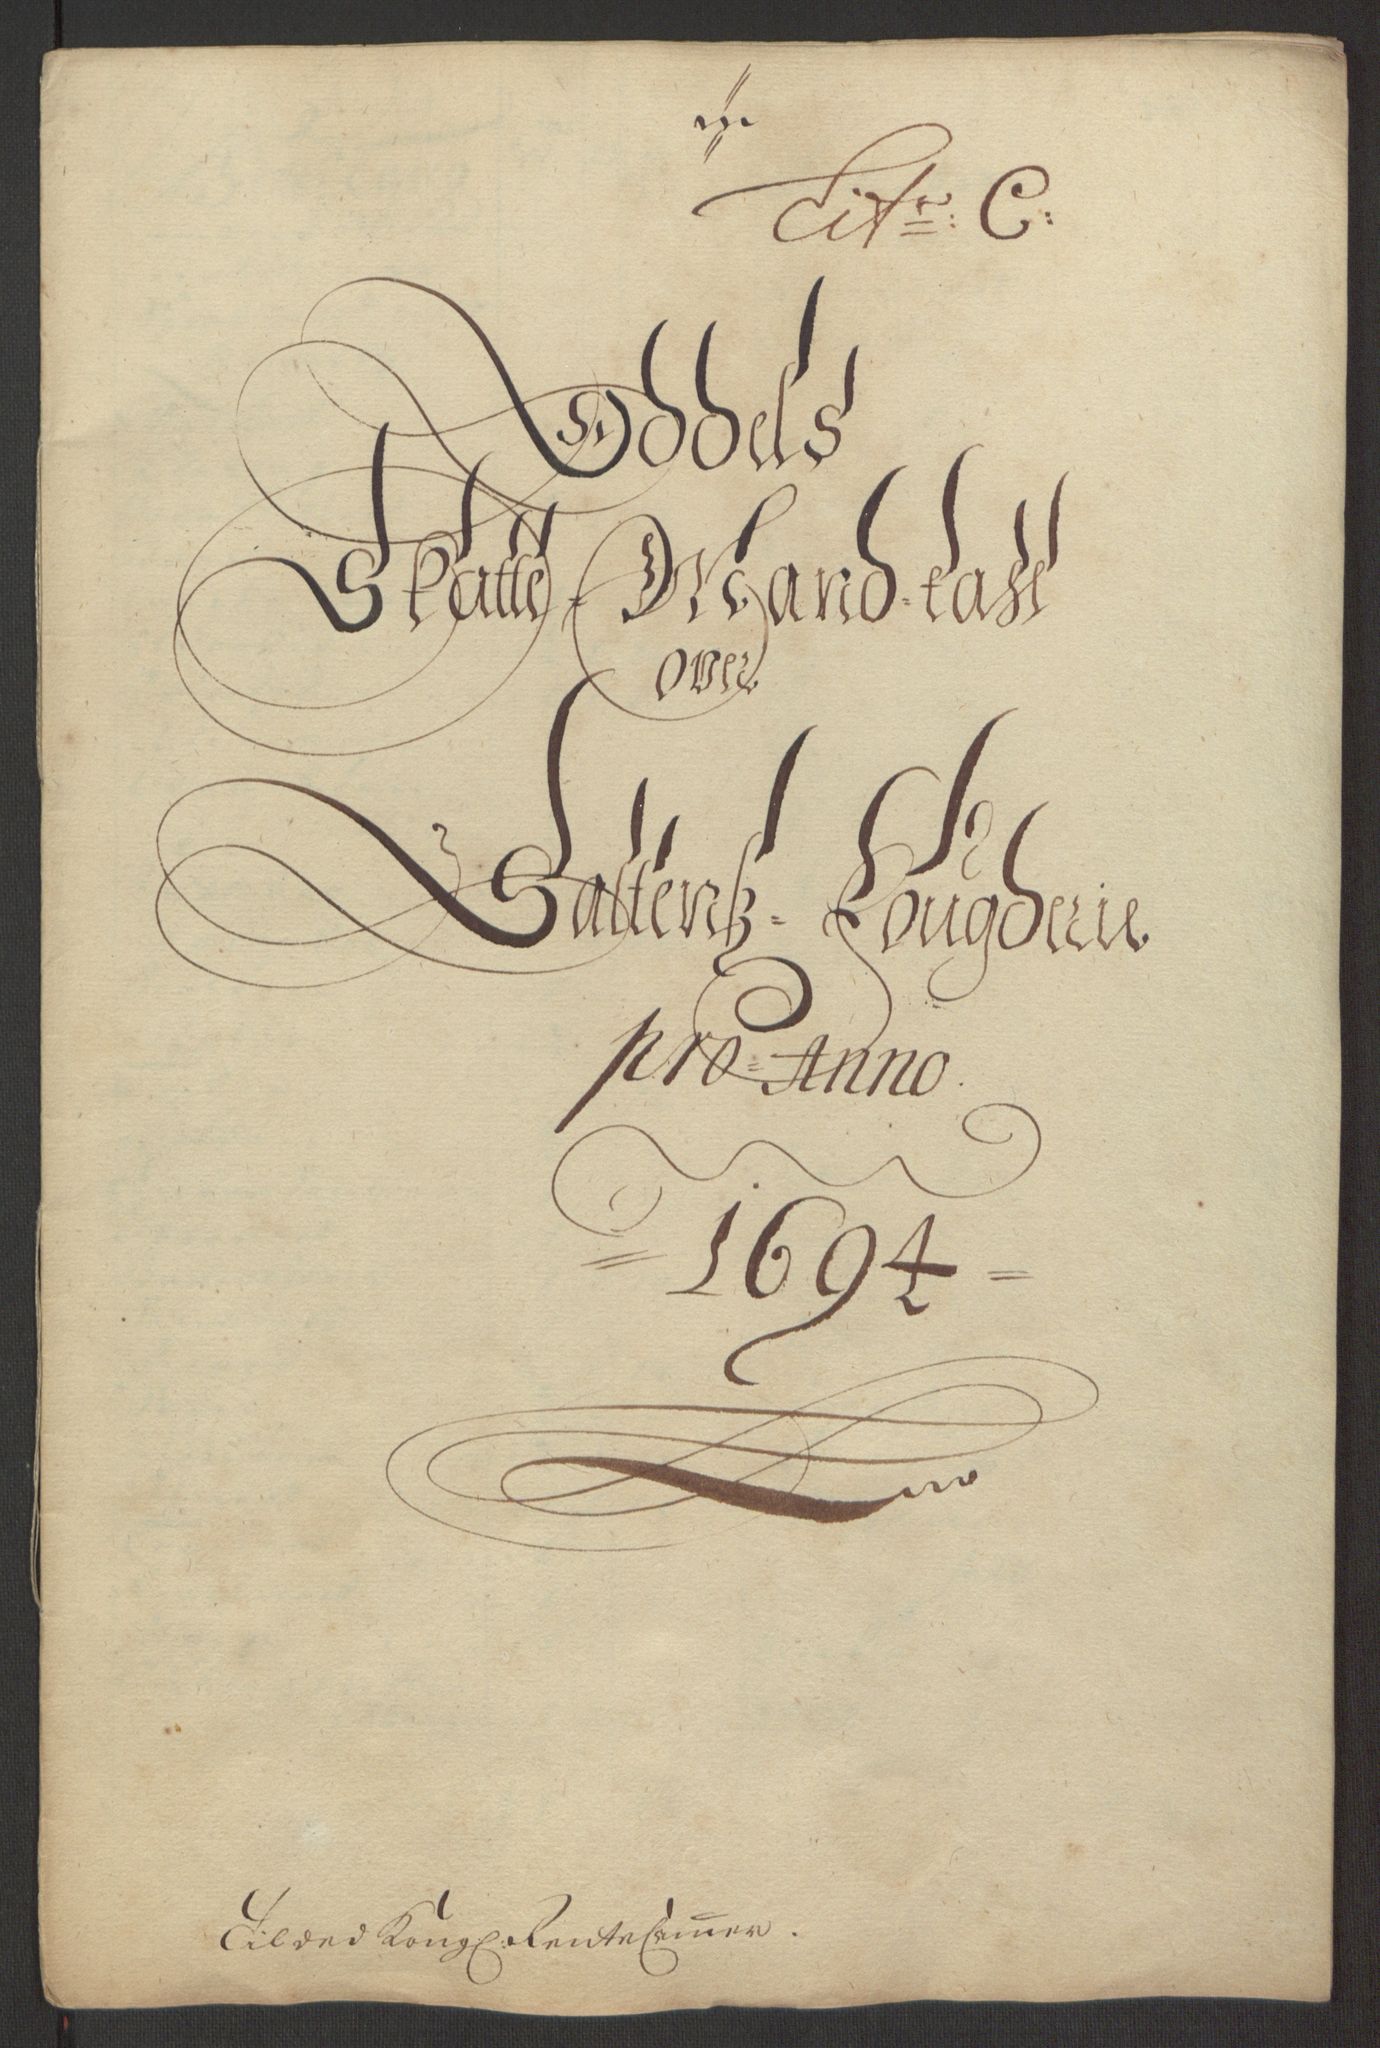 Litr: C:
Oddels
Skatte-Mandtall
over
Saltens-Fougderie
pro Anno
1694
Til det Kongl: Rentecammer.